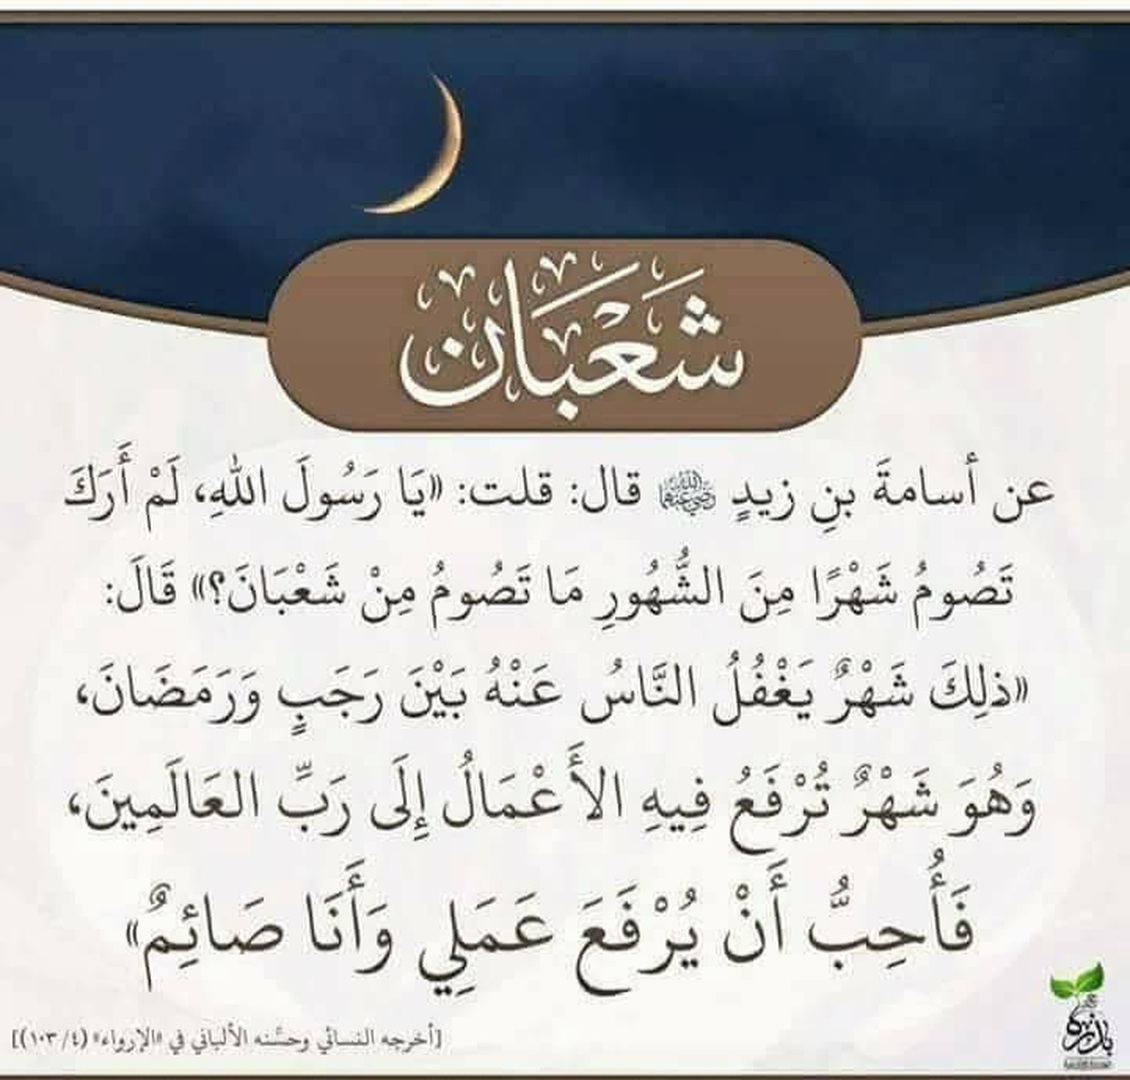 شَعْبَان
عن أسامةَ بنِ زيدٍ رضي الله عنهما قال: قلت: «يَا رَسُولَ اللهِ، لَمْ أَرَكَ
تَصُومُ شَهْرًا مِنَ الشُّهُورِ مَا تَصُومُ مِنْ شَعْبَانَ؟» قَالَ:
«ذلِكَ شَهْرٌ يَغْفُلُ النَّاسُ عَنْهُ بَيْنَ رَجَبٍ وَرَمَضَانَ،
وَهُوَ شَهْرٌ تُرْفَعُ فِيهِ الأَعْمَالُ إِلَى رَبِّ العَالَمِينَ،
فَأُحِبُّ أَنْ يُرْفَعَ عَمَلِي وَأَنَا صَائِمٌ»
[أخرجه النسائي وحسَّنه الألباني في «الإرواء» (٤/ ١٠٣)]